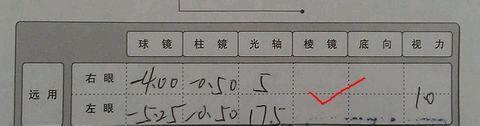 球镜 柱镜 光轴 棱镜 底向 视力
远用 右眼 -4.00 -0.50 5 1.0
左眼 -5.25 -0.50 175